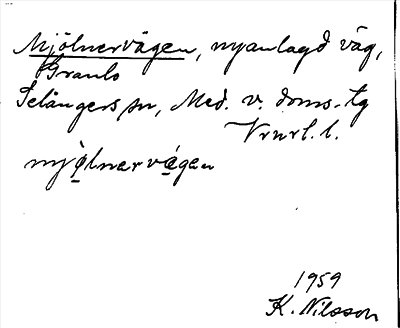 Mjölnervägen, nyanlagd väg,
Granlo
Selångers sn, Med. v. doms. tg
mjölnervägen
1959
K. Nilsson